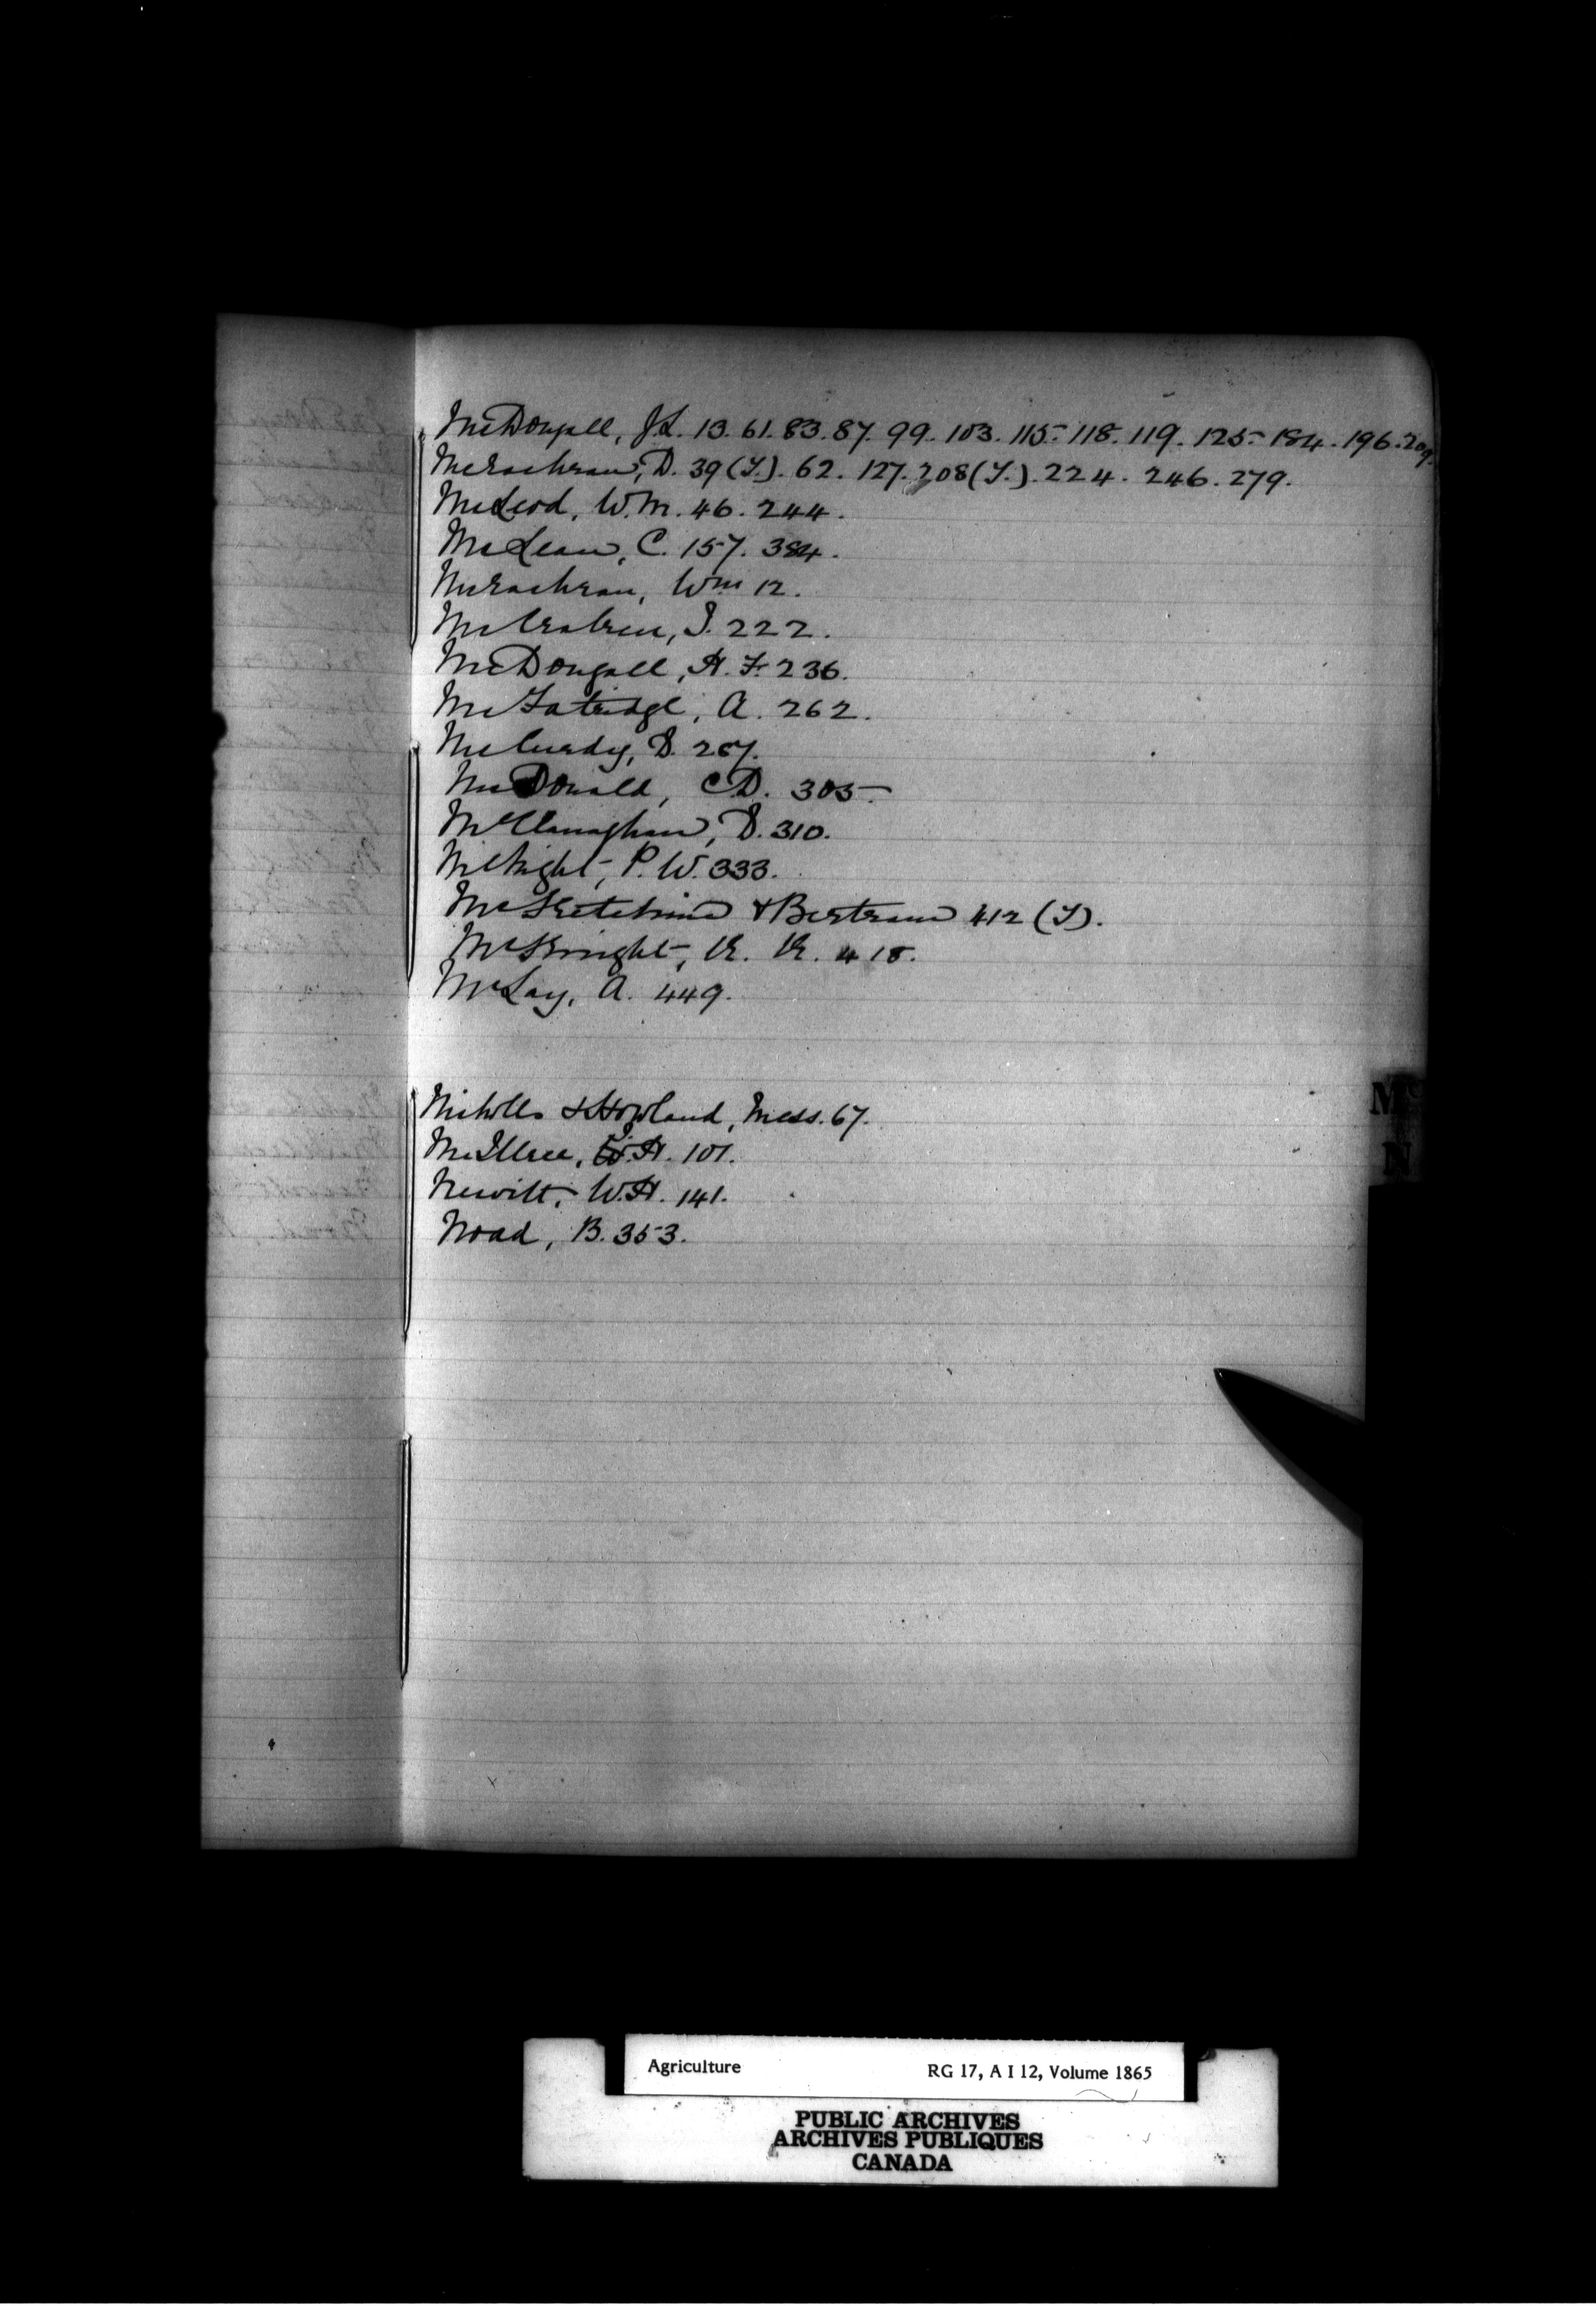 McDougall, J.L. 13. 61. 83. 87. 99. 103. 115. 118. 119. 125. 184. 196. 209.
McEachran, D. 39 (T.). 62. 127. 208 (T.). 224. 246. 279.
McLeod, W.M. 46. 244.
McLean, C. 157. 384.
McEachran, Wm 12.
McCraken, J. 222.
McDougall, H. F. 236.
McFatridge, A. 262.
McCurdy, D. 267.
McDonald, C.D. 305.
McClanaghan, D. 310.
McKnight, P. W. 333.
McKetchnie & Bertram 412 (T).
McKnight, R. R. 418.
McLay, A. 449.
Nicholls & Howland, Mess. 67.
McIllree, J.H. 101.
Newitt, W.H. 141.
Noad, B. 353.
Mc
N
Agriculture RG 17, A I 12, Volume 1865
PUBLIC ARCHIVES
ARCHIVES PUBLIQUES
CANADA